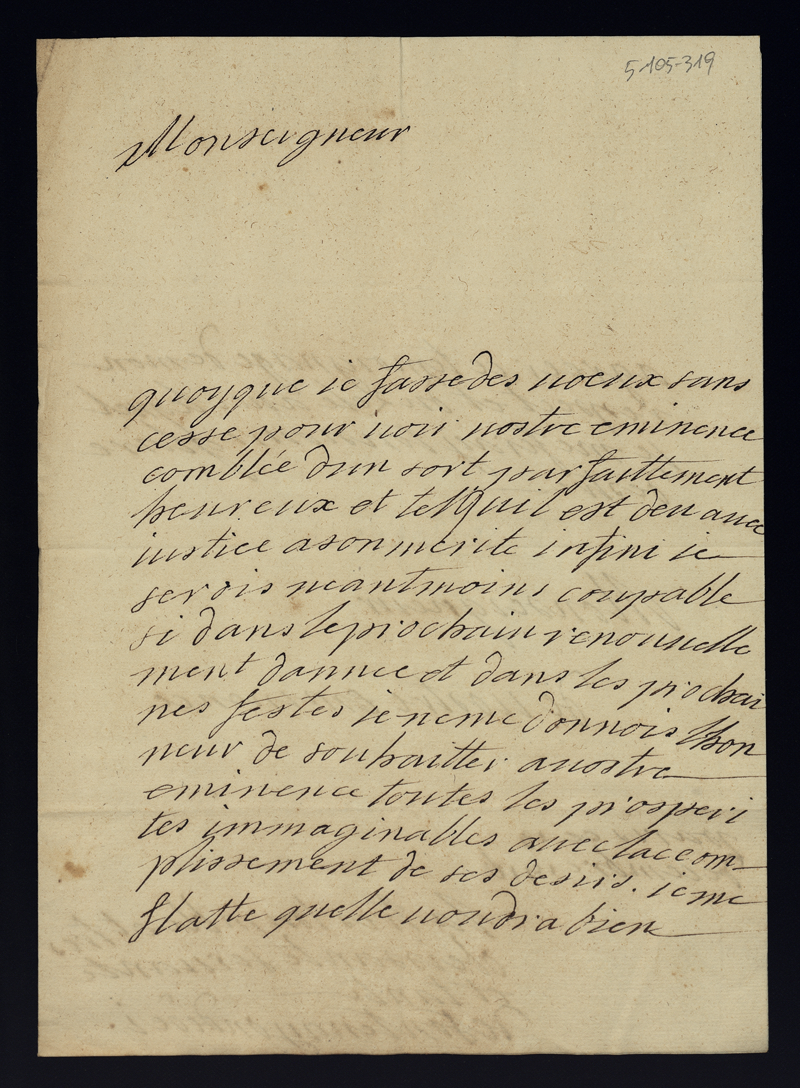 5-105-319
Monseigneur
quoyque ie fasse des uoeux sans
cesse pour uoir uostre eminence
comblée dun sort parfaittement
heureux et tel quil est deu auec
iustice a son merite infini ie
serois neantmoins coupable
si dans le prochain renouuelle
ment dannee et dans les prochai
nes festes ie ne me donnois lhon
neur de souhaitter a uostre
eminence toutes les prosperi
tes immaginables auec laccom-
plissement de ses desirs. ie me
flatte quelle uoudra bien